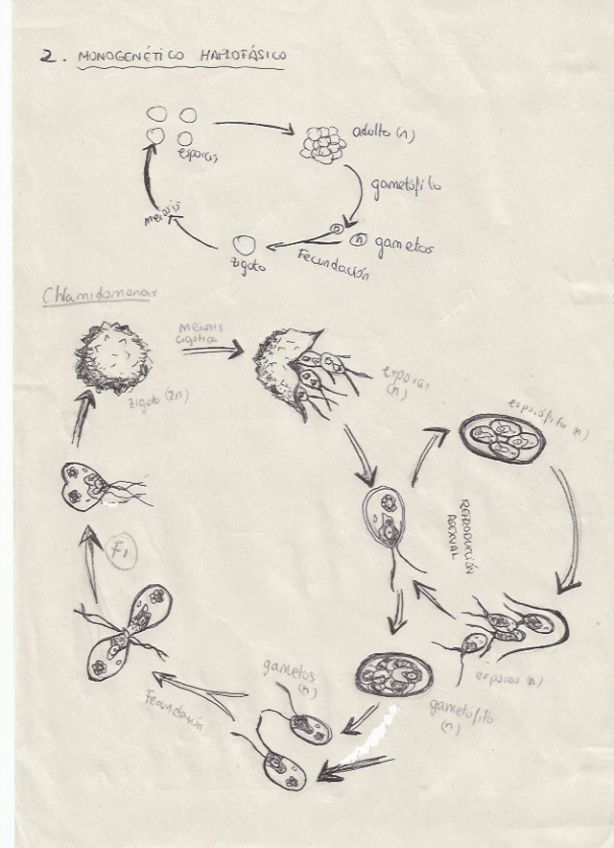 2. MONOGENÉTICO HAPLOFÁSICO
adulto (n)
esporas
gametófito
meiosis
n
n gametos
zigoto
Fecundación
Chlamidomonas
meiosis
cigótica
zigoto (2n)
esporas
(n)
esporófito (n)
REPRODUCCIÓN
ASEXUAL
F1
esporas (n)
gametos
(n)
gametófito
(n)
Fecundación